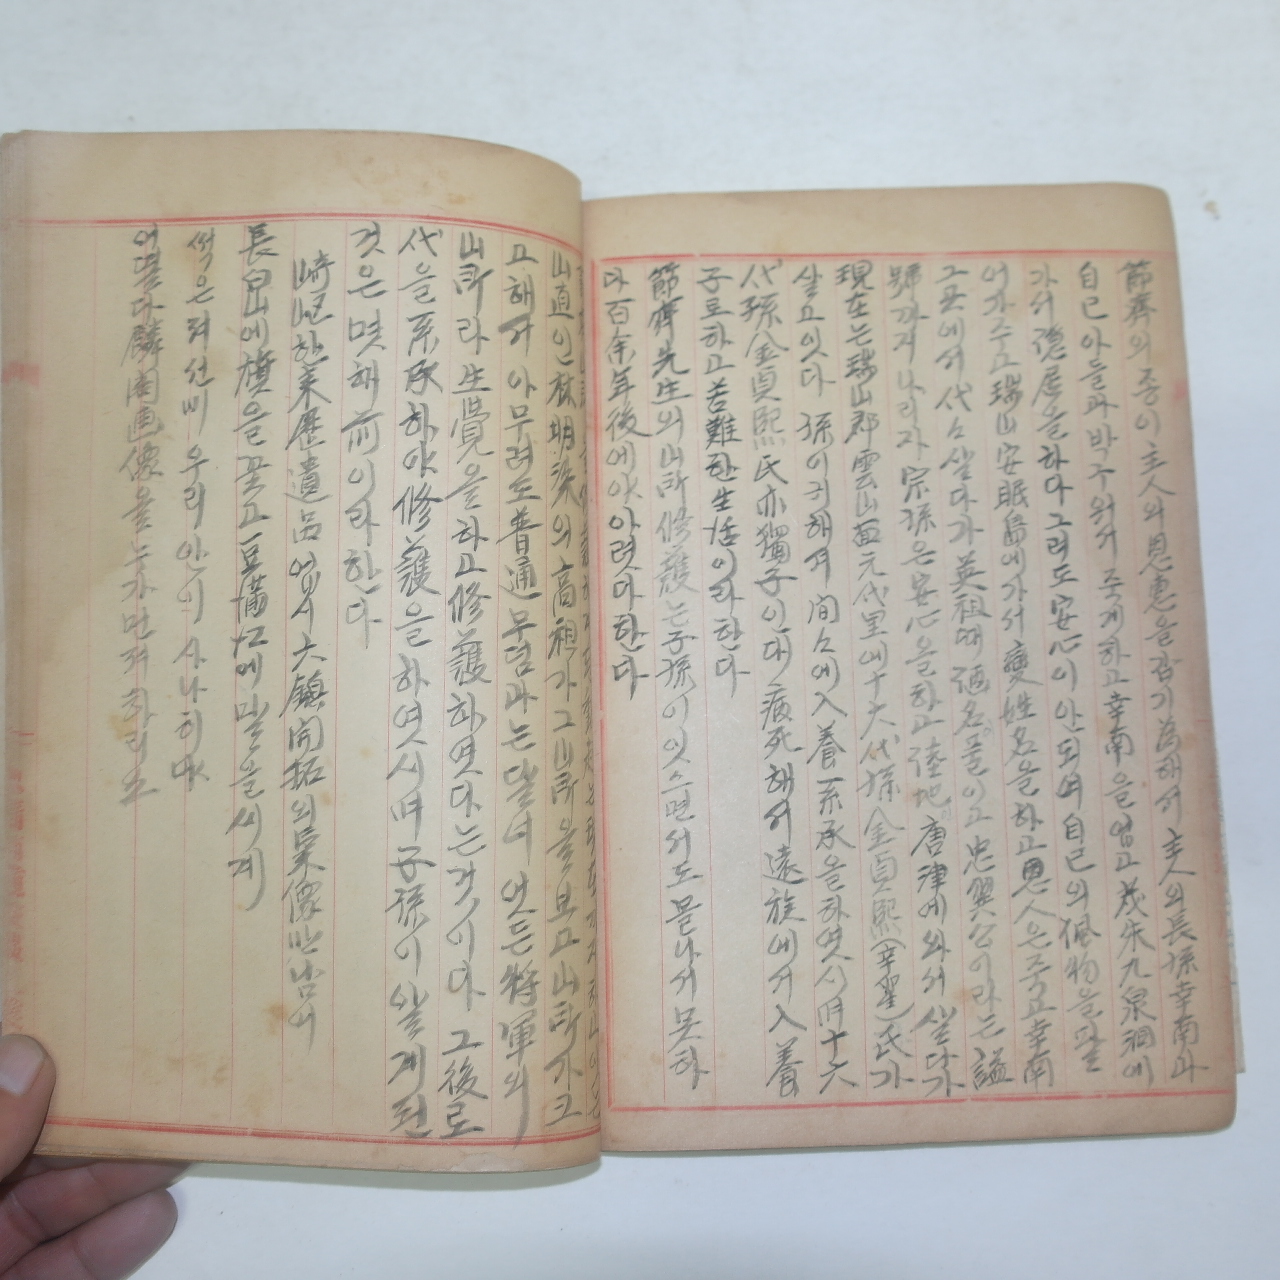 節齊의 종이 主人의 恩惠을 감기 爲해서 主人의 長孫 幸南과
自己 아들과 박구워서 죽게하고 幸南을 업고 茂朱九泉洞에
가서 隱居을 하다 그려도 安心이 안되여 自己의 佩物을 팔
어가주고 瑞山 安眠島에가서 變姓名을 하고 恩人은 죽고 幸南
그곳에서 代々 살다가 英祖때  명을이고 忠翼公이라는 諡
號까지 나리자 宗孫은 安心을 하고 陸地 唐津에와서 살다가
現在는 瑞山郡 雲山面 元代里에 十六代孫 金貞熙(幸翟)氏가
살고 잇다 孫이 귀해서 間々에 入養系承을 하엿시며 十六
代孫 金貞熙氏 亦 獨子인대 病死해서 遠族에서 入養
子로 하고 苦難한 生活이라 한다
節齊先生의 山所 修護는 子孫이 잇스면서도 몰나서 못하
다 百余年後에야 아럿다 한다
山直인 林明洙의 高祖가 그 山所을 보고 山所가 크
고해서 아무려도 普通 무덤과는 달너 엇든 將軍의
山所라 生覺을 하고 修護하엿다는 것이다 그後로
代을 系承하야 修護을 하엿시며 子孫이 알게된
것은 몃해 前이라 한다
崎嶇한 來歷 遺品 업시 大鎭開拓의 像만 남어
長白山에 旗을 꼿고 豆滿江에 말을 씨계
썩은 저 선비 우리 안이 사나히야
어떻다 麟閣画像을 누가 먼저 하리요